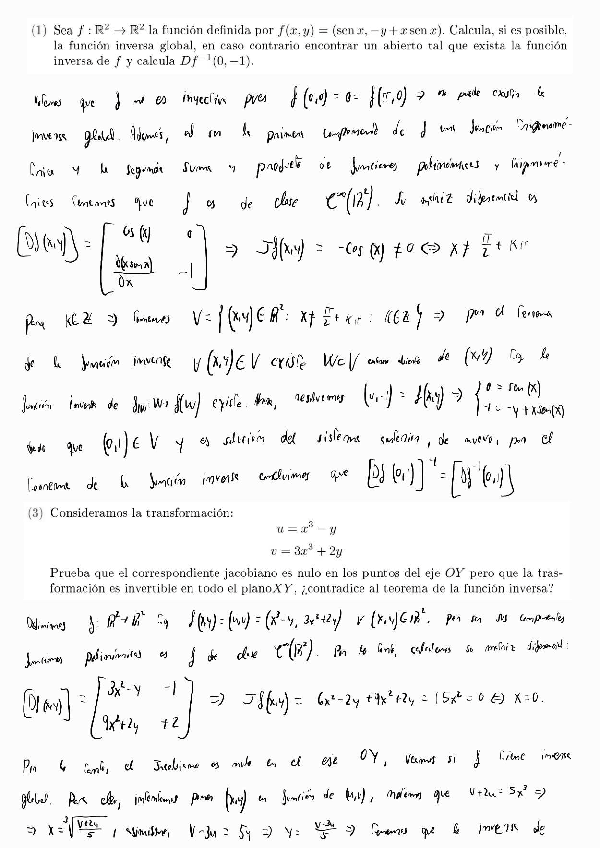 (1) Sea f : R² → R² la función definida por f(x, y) = (sen x, −y + x sen x). Calcula, si es posible,
la función inversa global, en caso contrario encontrar un abierto tal que exista la función
inversa de f y calcula Df⁻¹(0, −1).
Notemos que f no es inyectiva pues f(0,0) = 0 = f(π,0) ⇒ no puede existir la
inversa global. Además, al ser la primera componente de f una función trigonomé-
trica y la segunda suma y producto de funciones polinómicas y trigonomé-
tricas tenemos que f es de clase C^∞(R²). Su matriz diferencial es
[Df(x,y)] = [cos(x) 0 ; ∂(x sen x)/∂x −1] ⇒ Jf(x,y) = −cos(x) ≠ 0 ⇔ x ≠ π/2 + kπ
para k∈Z ⇒ Tomamos V = {(x,y) ∈ R² : x ≠ π/2 + kπ : k∈Z} ⇒ por el Teorema
de la función inversa ∀(x,y) ∈ V existe W⊂V entorno abierto de (x,y) Tq la
función inversa de f|W : W → f(W) existe. Ahora, resolvemos (0,−1) = f(x,y) ⇒ { 0 = sen(x) ; −1 = −y + x sen(x)
dado que (0,1) ∈ V y es solución del sistema anterior, de nuevo, por el
Teorema de la función inversa concluimos que [Df(0,1)]⁻¹ = [Df⁻¹(0,1)]
(3) Consideramos la transformación:
u = x³ − y
v = 3x³ + 2y
Prueba que el correspondiente jacobiano es nulo en los puntos del eje OY pero que la tras-
formación es invertible en todo el planoXY, ¿contradice al teorema de la función inversa?
Definimos f: R² → R² Tq f(x,y) = (u,v) = (x³−y, 3x³+2y) ∀(x,y) ∈ R². Por ser sus componentes
funciones polinómicas es f de clase C^∞(R²). Por lo tanto, calculemos su matriz diferencial:
[Df(x,y)] = [3x²−y −1 ; 9x²+2y +2] ⇒ Jf(x,y) = 6x²−2y+9x²+2y = 15x² = 0 ⇔ x = 0.
Por lo tanto, el Jacobiano es nulo en el eje OY, Veamos si f tiene inversa
global. Para ello, intentamos poner (x,y) en función de (u,v), notemos que v+2u = 5x³ ⇒
⇒ x = ∛((v+2u)/5), asimismo, v−3u = 5y ⇒ y = (v−3u)/5 ⇒ Tenemos que la inversa de